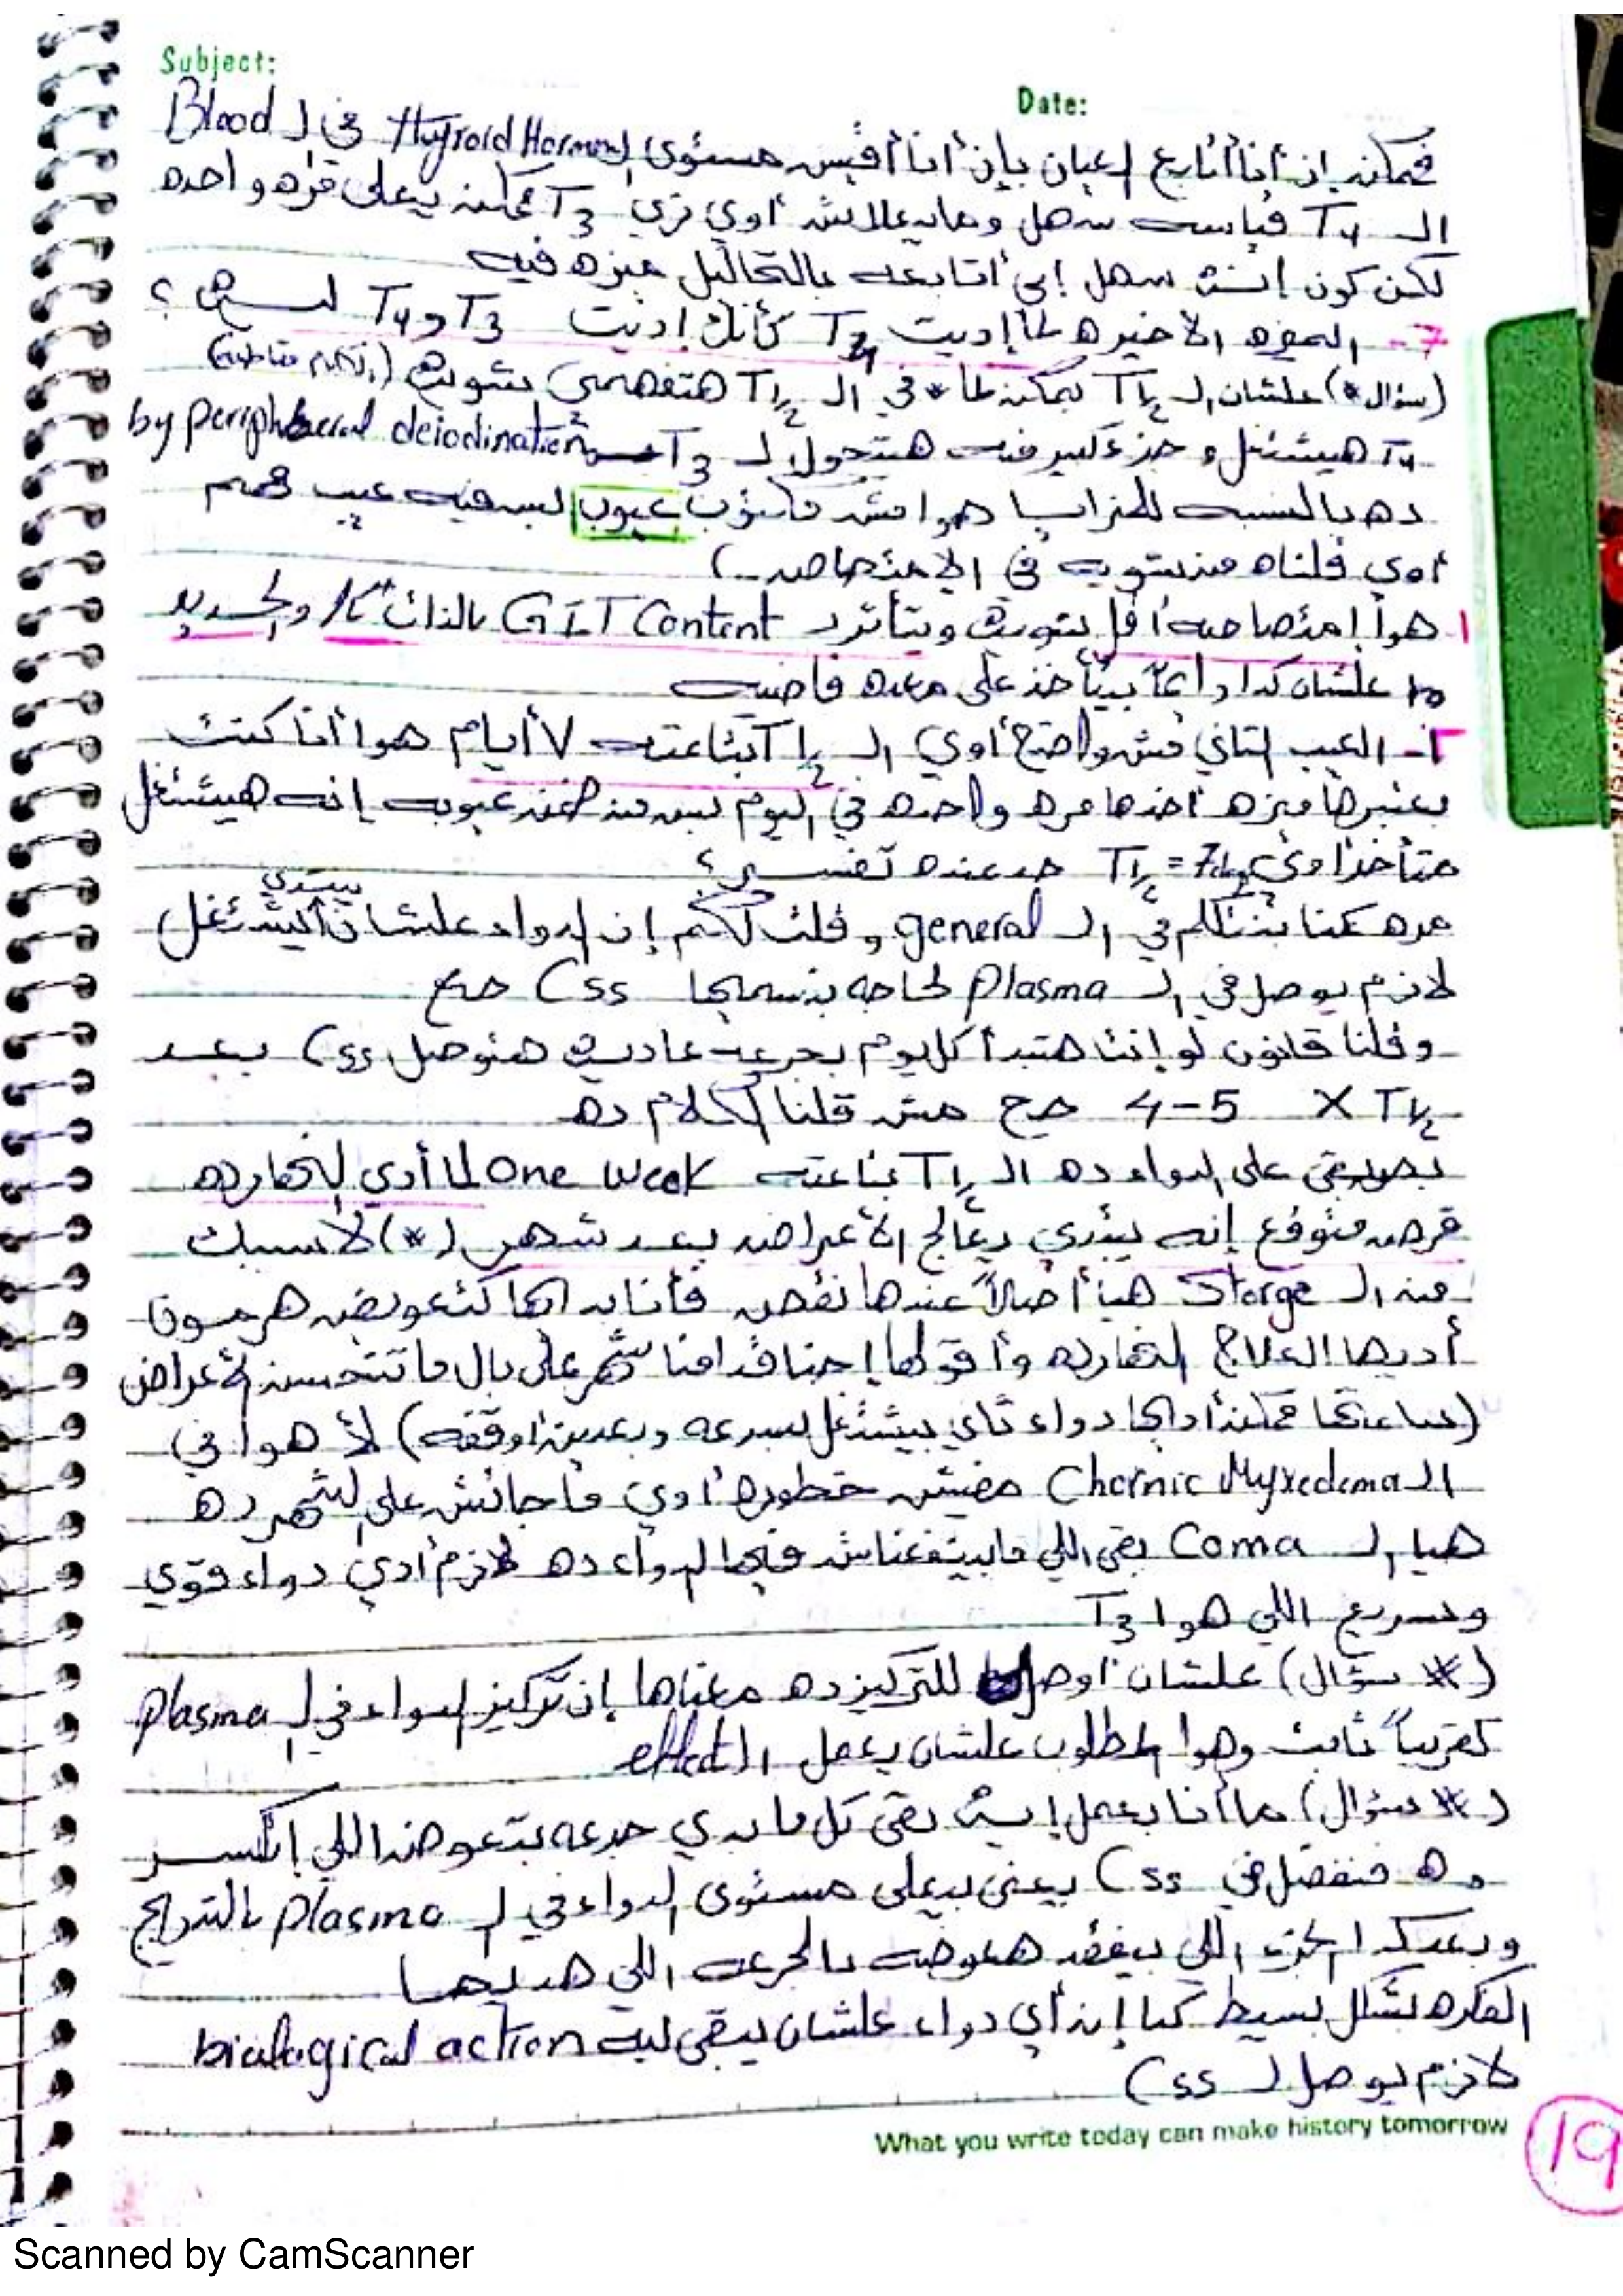 Subject:
Date:
فممكن إن أنا أتابع العيان بإن أنا أقيس مستوى الـ Thyroid Hormone في الـ Blood
الـ T4 قياسه سهل ومابيعلاش أوي زي T3 ممكن يعلى مره واحده
لكن كون إنت سهل إني أتابعه بالتحاليل ميزه فيه
7- الميزه الأخيره لما إديت T4 كأنك إديت T3 و T4 ليه ؟
(سؤال *) علشان الـ T½ يمكن لما * في الـ T½ هتفهمي بشويه
T4 هيشتغل و جزء كبير منه هيتحول لـ T3 by peripheral deiodination
ده بالنسبه للمزايا هوا مش عيوب ليس فيه عيب مهم
أوي قلناه من شويه في الامتصاص)
1 هوا امتصاصه أقل بشويه وبتأثر بـ GIT Content بالذات الـ والحديد
علشان كدا دايماً بيتأخذ على معده فاضيه
2- العيب التاني مش واضح أوي الـ t½ بتاعته 7 أيام هوا أنا كنت
بعتبرها ميزه أخدها مره واحده في اليوم بس من ضمن عيوبه إنه هيشتغل
متأخر أوي T½ = 7 حد عنده تفسير ؟
مره كنا بنتكلم في الـ general وقلت لكم إن الدواء علشان يبتدي يشتغل
لازم يوصل في الـ plasma لحاجه بنسميها Css صح
وقلنا قانون لو إنت هتبدأ كل يوم بجرعه عاديه هنوصل Css بعد
4-5 X T½ صح مش قلنا الكلام ده
بصوا بقى على الدواء ده الـ T½ بتاعته one week لما أدي النهارده
قرص متوقع إنه يبتدي يعالج الأعراض بعد شهر (*) لأ سيبك
من الـ Storge هيا أصلاً عندها نقص فأنا بديها كتعويض هرمون
أديها العلاج النهارده وأقولها إحنا قدامنا شهر على بال ما تتحسن الأعراض
(ساعتها ممكن أديها دواء تاني بيشتغل بسرعه وبعدين أوقفه) لأ هوا في
الـ Chornic Myxedema مفيش خطوره أوي ماجاتش على الشهر ده
هيا الـ Coma بقى اللي مابينفعناش فيها الدواء ده لازم أدي دواء قوي
وسريع اللي هوا T3
(* سؤال) علشان أوصل للتركيز ده معناها إن تركيز الدواء في الـ plasma
تقريباً ثابت وهوا المطلوب علشان يعمل الـ effect
(* سؤال) ما أنا بعمل إيه بقى كل ما بدي جرعه بتعوض اللي إتكسر
ده فنفضل في Css يعني بيعلى مستوى الدواء في الـ plasma بالتدريج
وبعد كدا الجزء اللي بيفقد هعوضه بالجرعه اللي هديها
الفكره بشكل بسيط كدا إن أي دواء علشان يبقى ليه biological action
لازم يوصل لـ Css
What you write today can make history tomorrow
19
Scanned by CamScanner